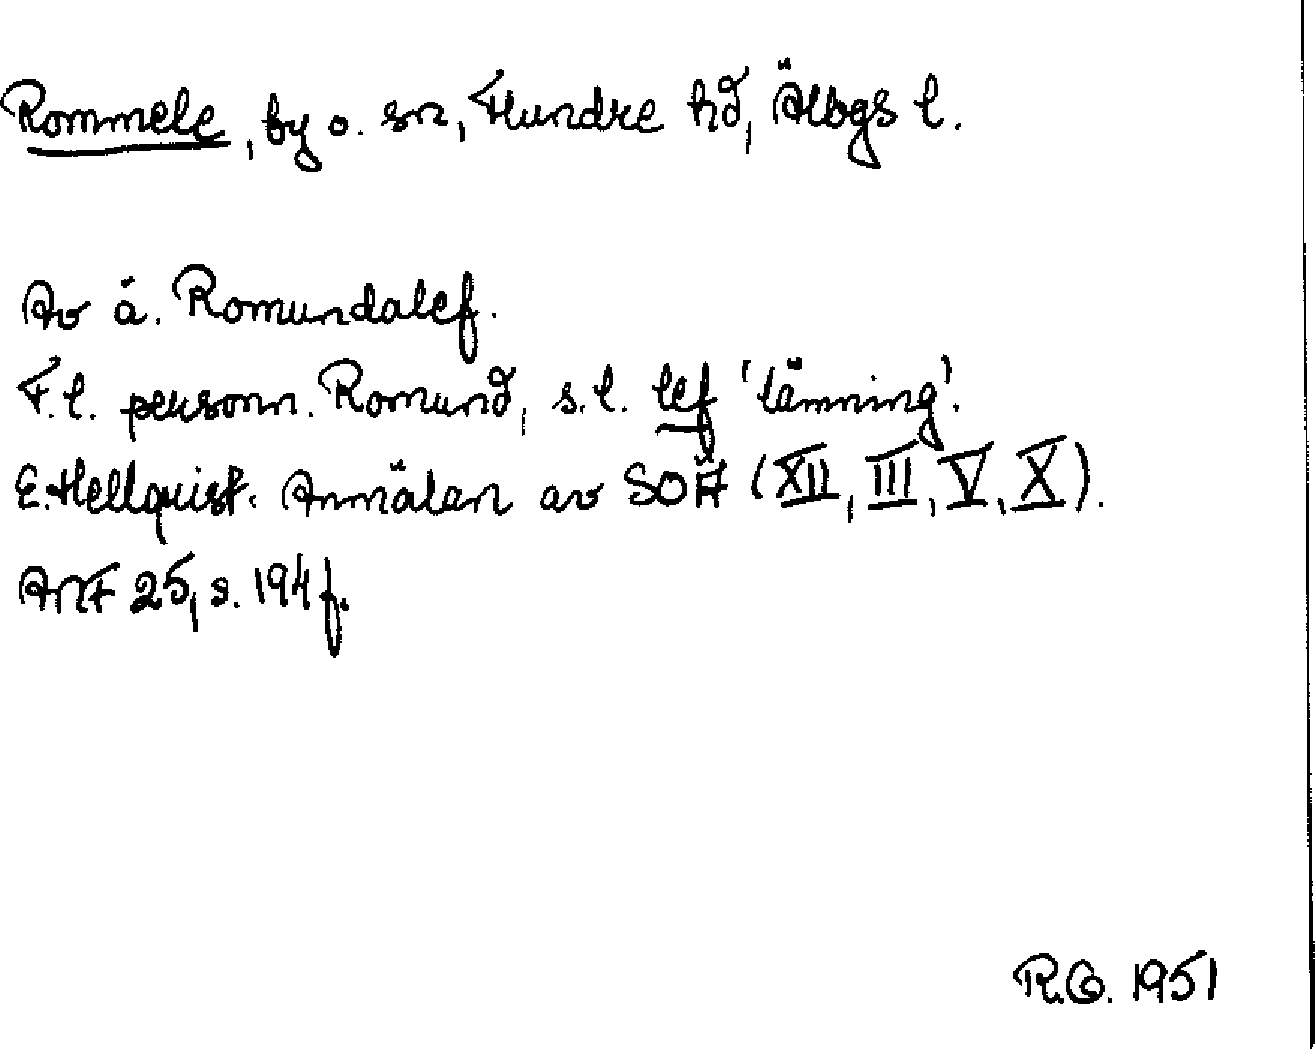 Rommele, by o. sn, Flundre hd, Älvbgs l.
Av ä. Romundalef.
F.l. personn. Romund, s.l. lef 'lämning'.
E. Hellquist. Anmälan av SOÄ (XII, III, V, X).
ANF 25, s. 194 f.
R.G. 1951